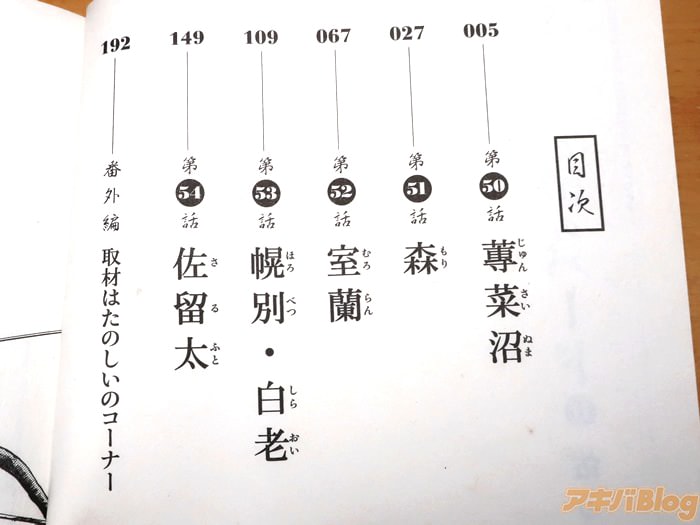 目次
005
第50話 蓴菜沼
じゅんさいぬま
027
第51話 森
もり
067
第52話 室蘭
むろらん
109
第53話 幌別・白老
ほろべつ しらおい
149
第54話 佐留太
さるふと
192
番外編 取材はたのしいのコーナー
アキバBlog